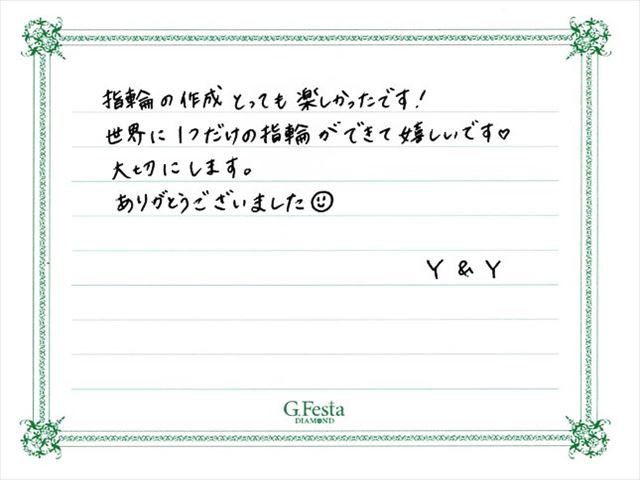 指輪の作成とっても楽しかったです!
世界に1つだけの指輪ができて嬉しいです♡
大切にします。
ありがとうございました☺
Y & Y
G.Festa
DIAMOND